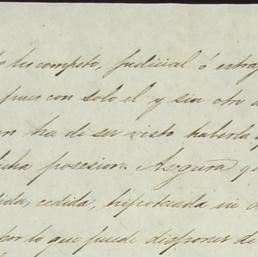 les competa, judicial ó extraj
pues con solo el y sin otro a
ha de ser visto haberla
dicha posesion. Asegura q
dida, cedida, hipotecada in
por lo que puede disponer de